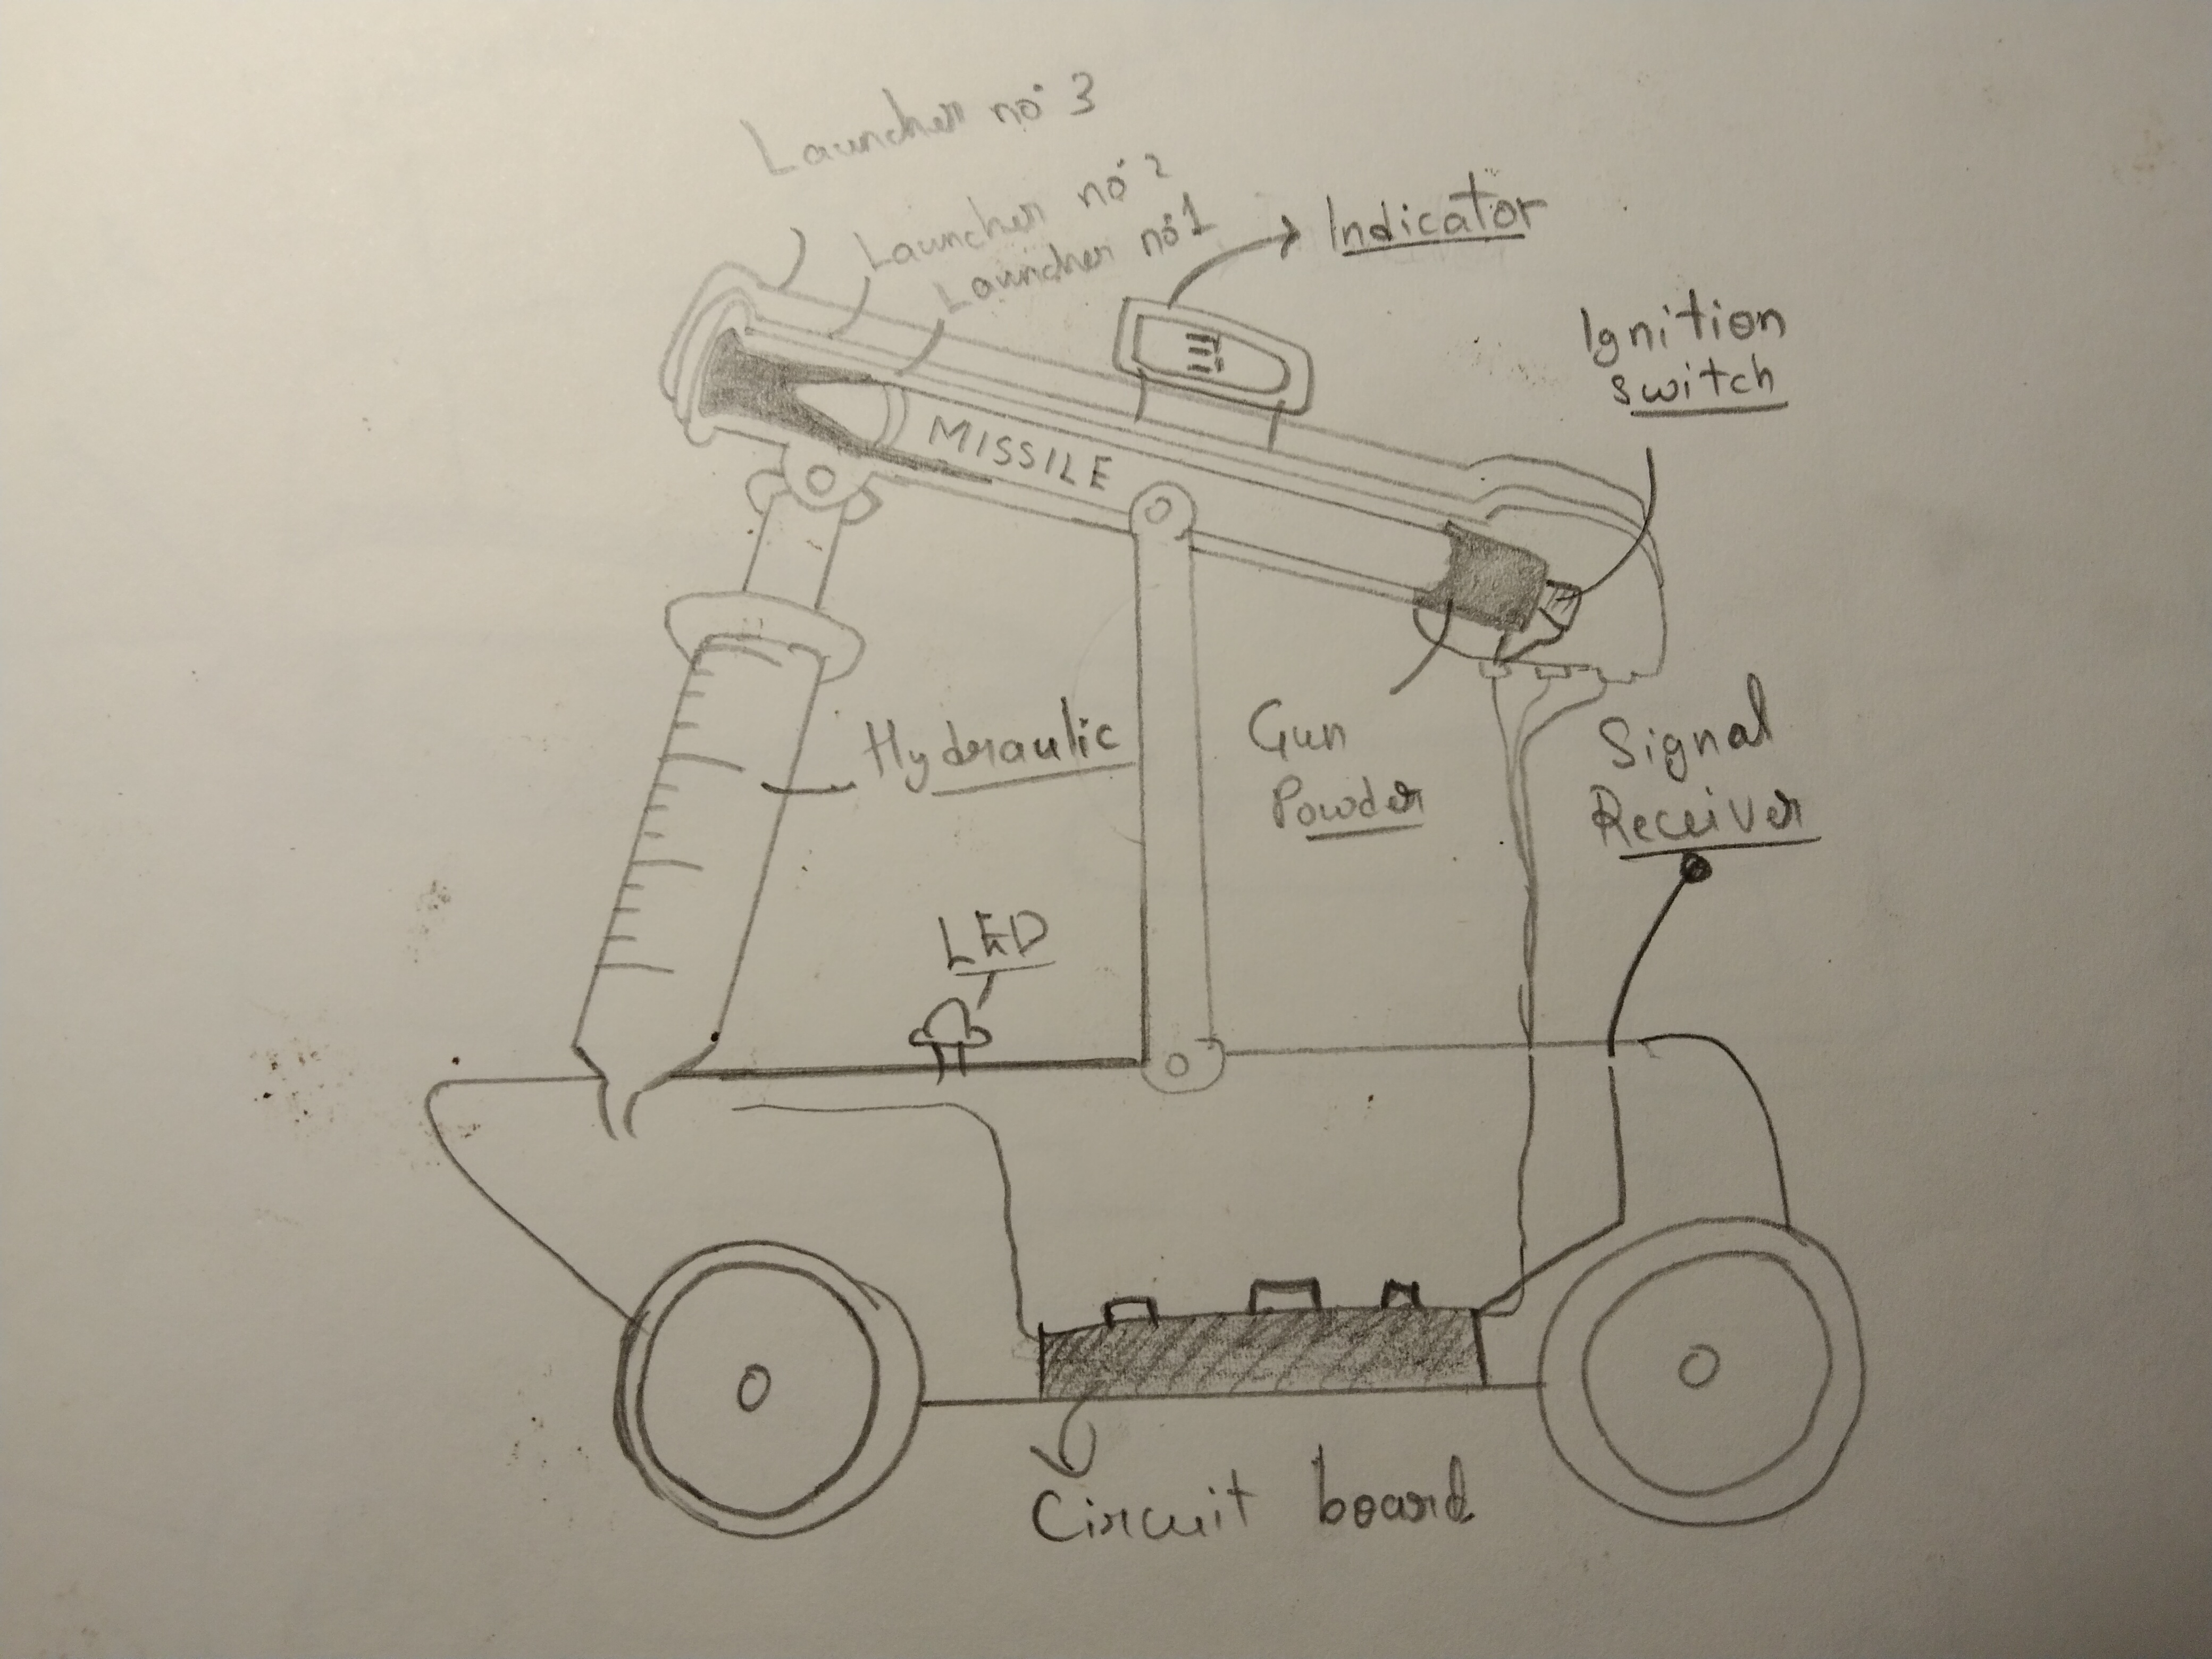 Launcher no: 3
Launcher no: 2
Launcher no: 1
Indicator
Ignition
switch
MISSILE
Hydraulic
Gun
Powder
Signal
Receiver
LED
Circuit board